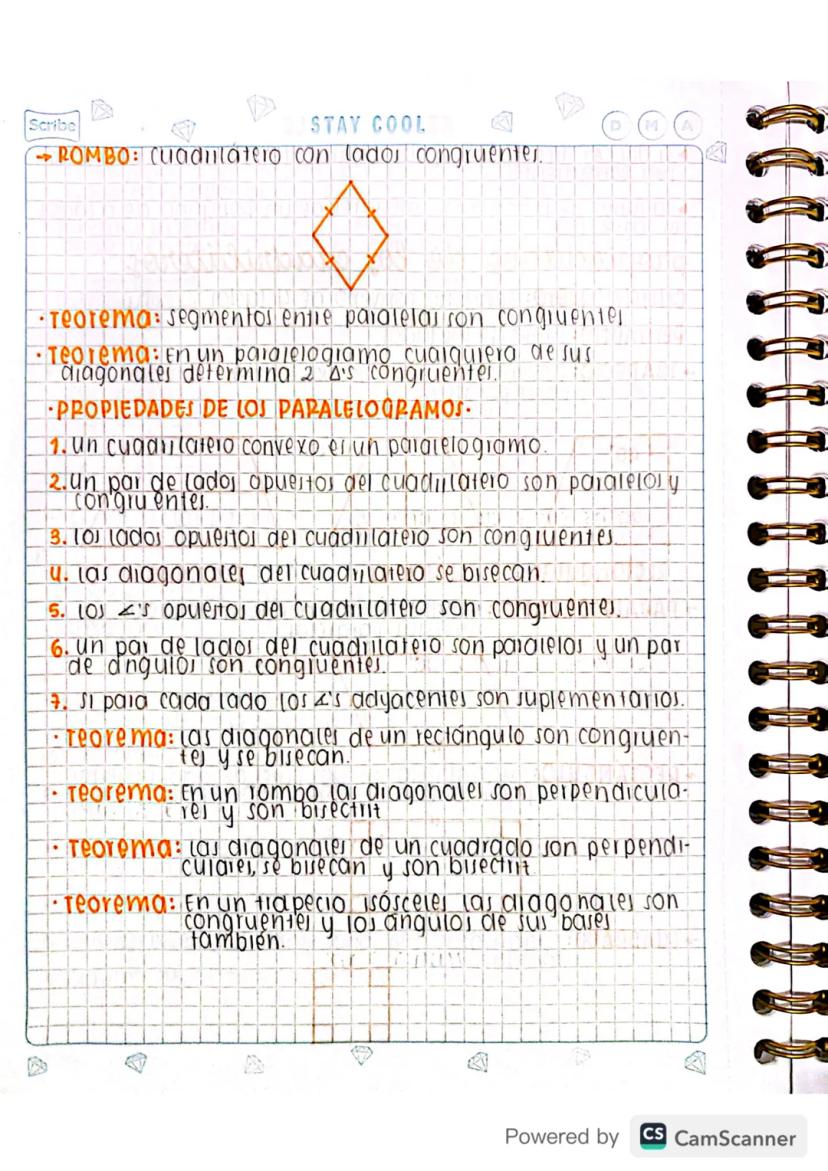 Scribe
STAY COOL
D M A
→ ROMBO: cuadrilátero con lados congruentes.
· Teorema: segmentos entre paralelas son congruentes
· Teorema: En un paralelogramo cualquiera de sus
diagonales determina 2 Δ's congruentes.
· PROPIEDADES DE LOS PARALELOGRAMOS ·
1. un cuadrilatero convexo es un paralelogramo.
2. un par de lados opuestos del cuadrilatero son paralelos y
congruentes.
3. los lados opuestos del cuadrilatero son congruentes
4. las diagonales del cuadrilatero se bisecan.
5. los ∠'s opuestos del cuadrilatero son congruentes.
6. un par de lados del cuadrilatero son paralelos y un par
de angulos son congruentes.
7. si para cada lado los ∠'s adyacentes son suplementarios.
· Teorema: las diagonales de un rectángulo son congruen-
tes y se bisecan.
· Teorema: En un rombo las diagonales son perpendicula-
res y son bisectriz
· Teorema: las diagonales de un cuadrado son perpendi-
culares, se bisecan y son bisectriz
· Teorema: En un trapecio isósceles las diagonales son
congruentes y los angulos de sus bases
también.
Powered by CS CamScanner